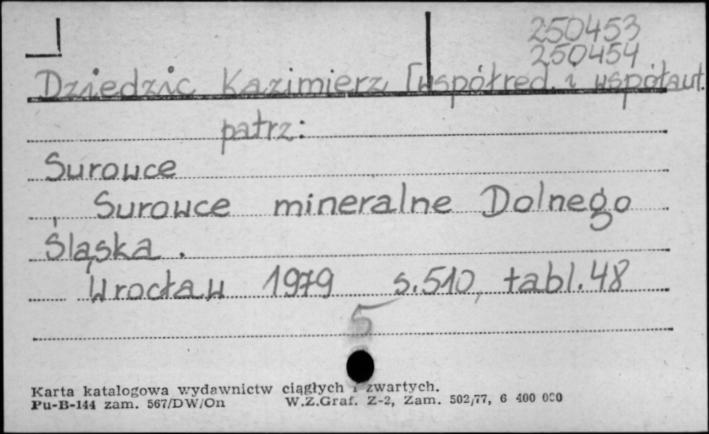 250453
250454
Dziedzic Kazimierz [współred. i współaut.
patrz:
Surowce
Surowce mineralne Dolnego
Śląska.
Wrocław 1979 s.510, tabl.48
5
Karta katalogowa wydawnictw ciągłych i zwartych.
Pu-B-144 zam. 567/DW/On W.Z.Graf. Z-2, Zam. 502/77, 6 400 000